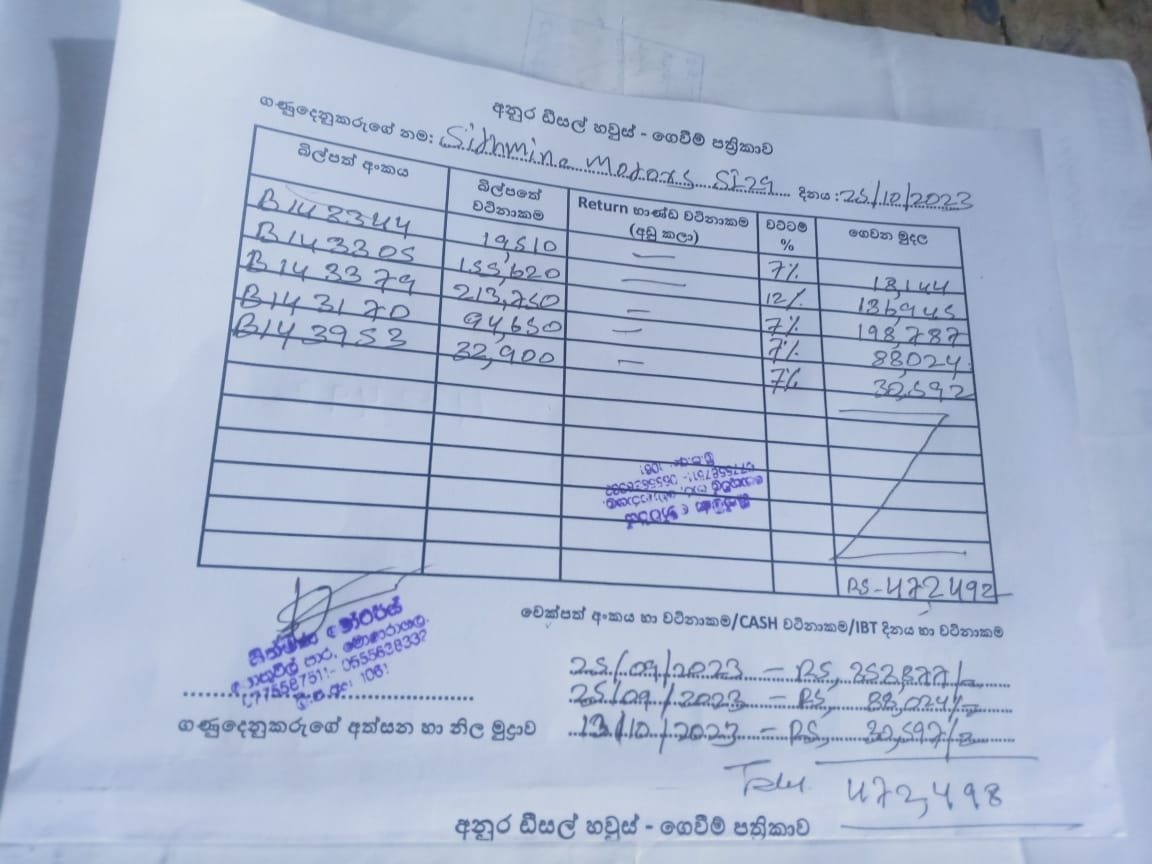 අනුර ඩීසල් හවුස් - ගෙවීම් පත්‍රිකාව
ගණුදෙනුකරුගේ නම: Sithmina Motors SI29 දිනය: 25/10/2023
බිල්පත් අංකය බිල්පතේ වටිනාකම Return භාණ්ඩ වටිනාකම (අඩු කලා) වට්ටම % ගෙවන මුදල
B143344 19,510 — 7% 18,144
B143305 155,620 — 12% 136,945
B143379 213,750 — 7% 198,787
B143170 94,650 — 7% 88,024
B143953 32,900 — 7% 30,592
RS-472492
චෙක්පත් අංකය හා වටිනාකම/CASH වටිනාකම/IBT දිනය හා වටිනාකම
25/09/2023 - RS, 352,877/=
25/09/2023 - RS, 88,024/=
13/10/2023 - RS, 30,597/=
472,498
ගණුදෙනුකරුගේ අත්සන හා නිල මුද්‍රාව
අනුර ඩීසල් හවුස් - ගෙවීම් පත්‍රිකාව